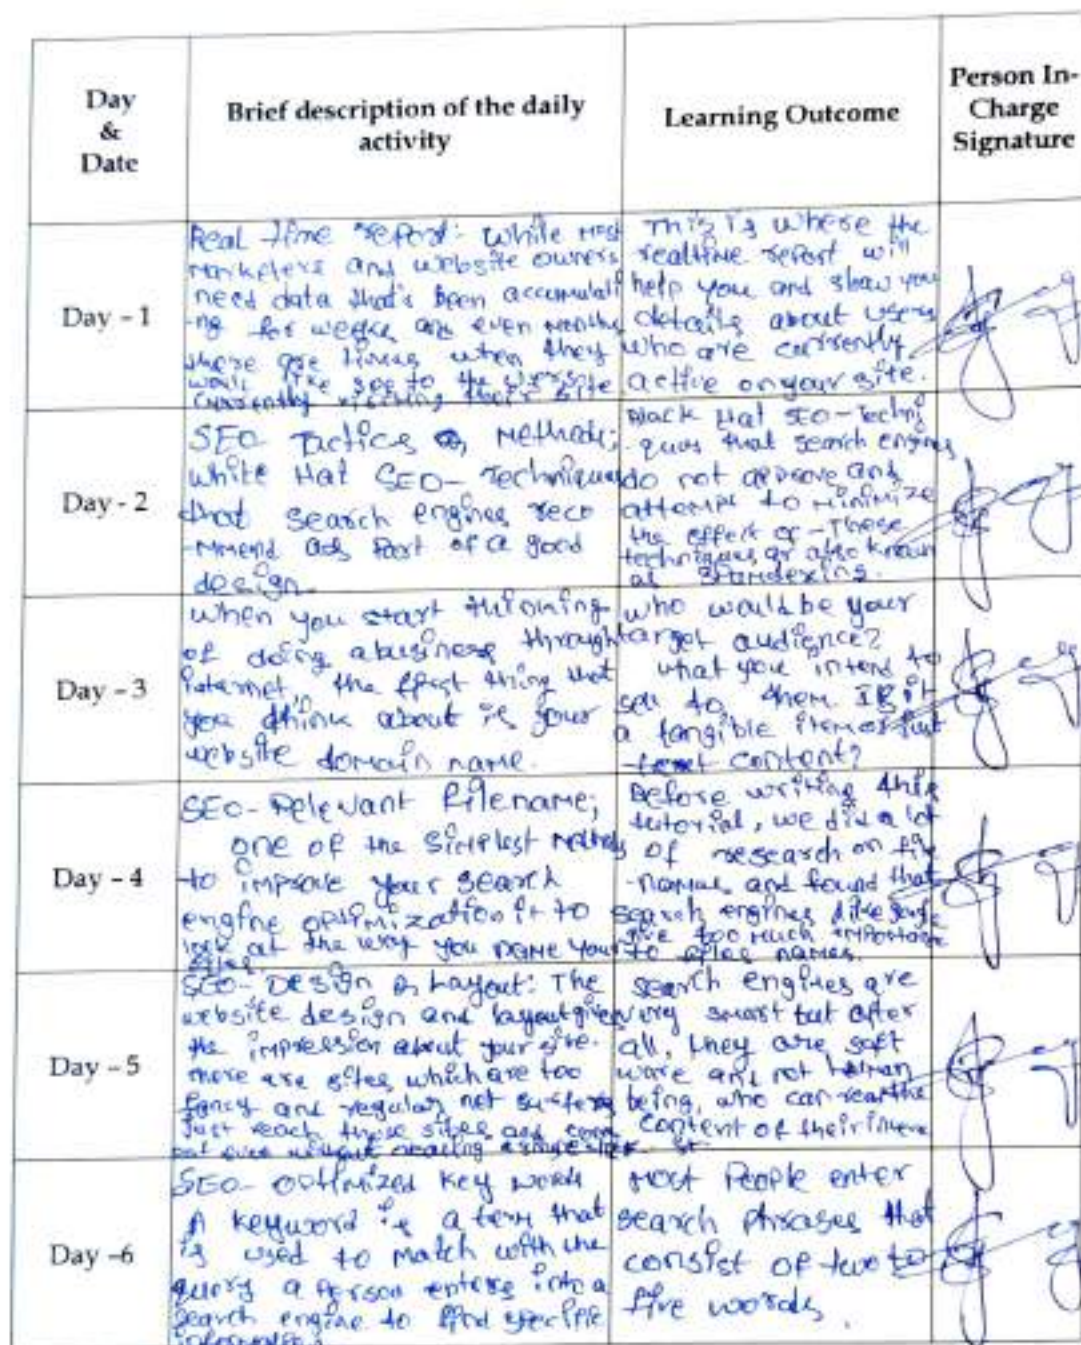 Day
&
Date
Brief description of the daily
activity
Learning Outcome
Person In-
Charge
Signature
Day - 1
Real time report: while most
marketers and website owners
need data that's been accumulati
-ng for weeks are even months
there are times when they
would like see to the users
currently visiting their site
This is where the
realtime report will
help you and show you
details about users
who are currently
active on your site.
Day - 2
SEO Tactics Methods;
white Hat SEO- Techniques
that search engines reco
-mmend ads part of a good
design.
Black Hat SEO-Techni
-ques that search engines
do not approve and
attempt to minimize
the effect of -These
techniques or also known
as
Day - 3
when you start
of doing abusiness through
internet, the first thing that
you think about is your
website domain name.
who would be your
target audience?
what you intend to
sell to them Is it
a tangible item or just
content?
Day - 4
SEO- Relevant filename;
one of the simplest methods
to improve your search
engine optimization it to
look at the way you name your
files.
Before writing this
tutorial, we did a lot
of research on file
-names and found that
search engines like
give too much importance
to files names.
Day - 5
SEO- Design & Layout: The
website design and layout gives
the impression about your site.
there are sites which are too
fancy and regular net
just reach those sites and come
out even without creating a
search engines are
very smart but after
all, they are soft
ware and not human
being, who can read the
content of their
Day -6
SEO- optimized key words
A keyword is a term that
is used to match with the
query a person enters into a
search engine to find specific
information
most People enter
search phrases that
consist of two to
five words.